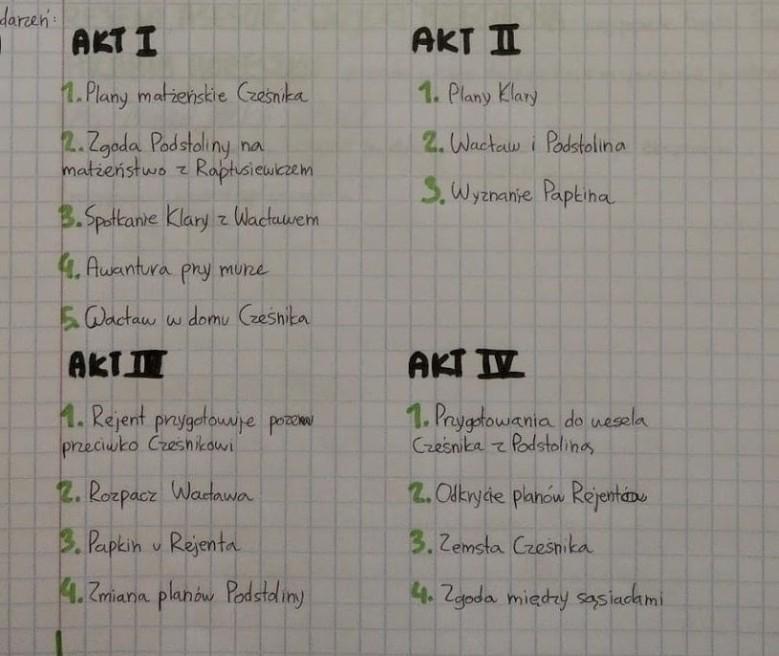 darzeń:
AKT I
1. Plany matżeńskie Cześnika
2. Zgoda Podstoliny na
matżeństwo z Raptusiewiczem
3. Spotkanie Klary z Wacławem
4. Awantura przy murze
5. Wacław w domu Cześnika
AKT II
1. Plany Klary
2. Wacław i Podstolina
3. Wyznanie Papkina
AKT III
1. Rejent przygotowuje pozew
przeciwko Cześnikowi
2. Rozpacz Wacława
3. Papkin u Rejenta
4. Zmiana planów Podstoliny
AKT IV
1. Przygotowania do wesela
Cześnika z Podstoliną
2. Odkrycie planów Rejenta
3. Zemsta Cześnika
4. Zgoda między sąsiadami